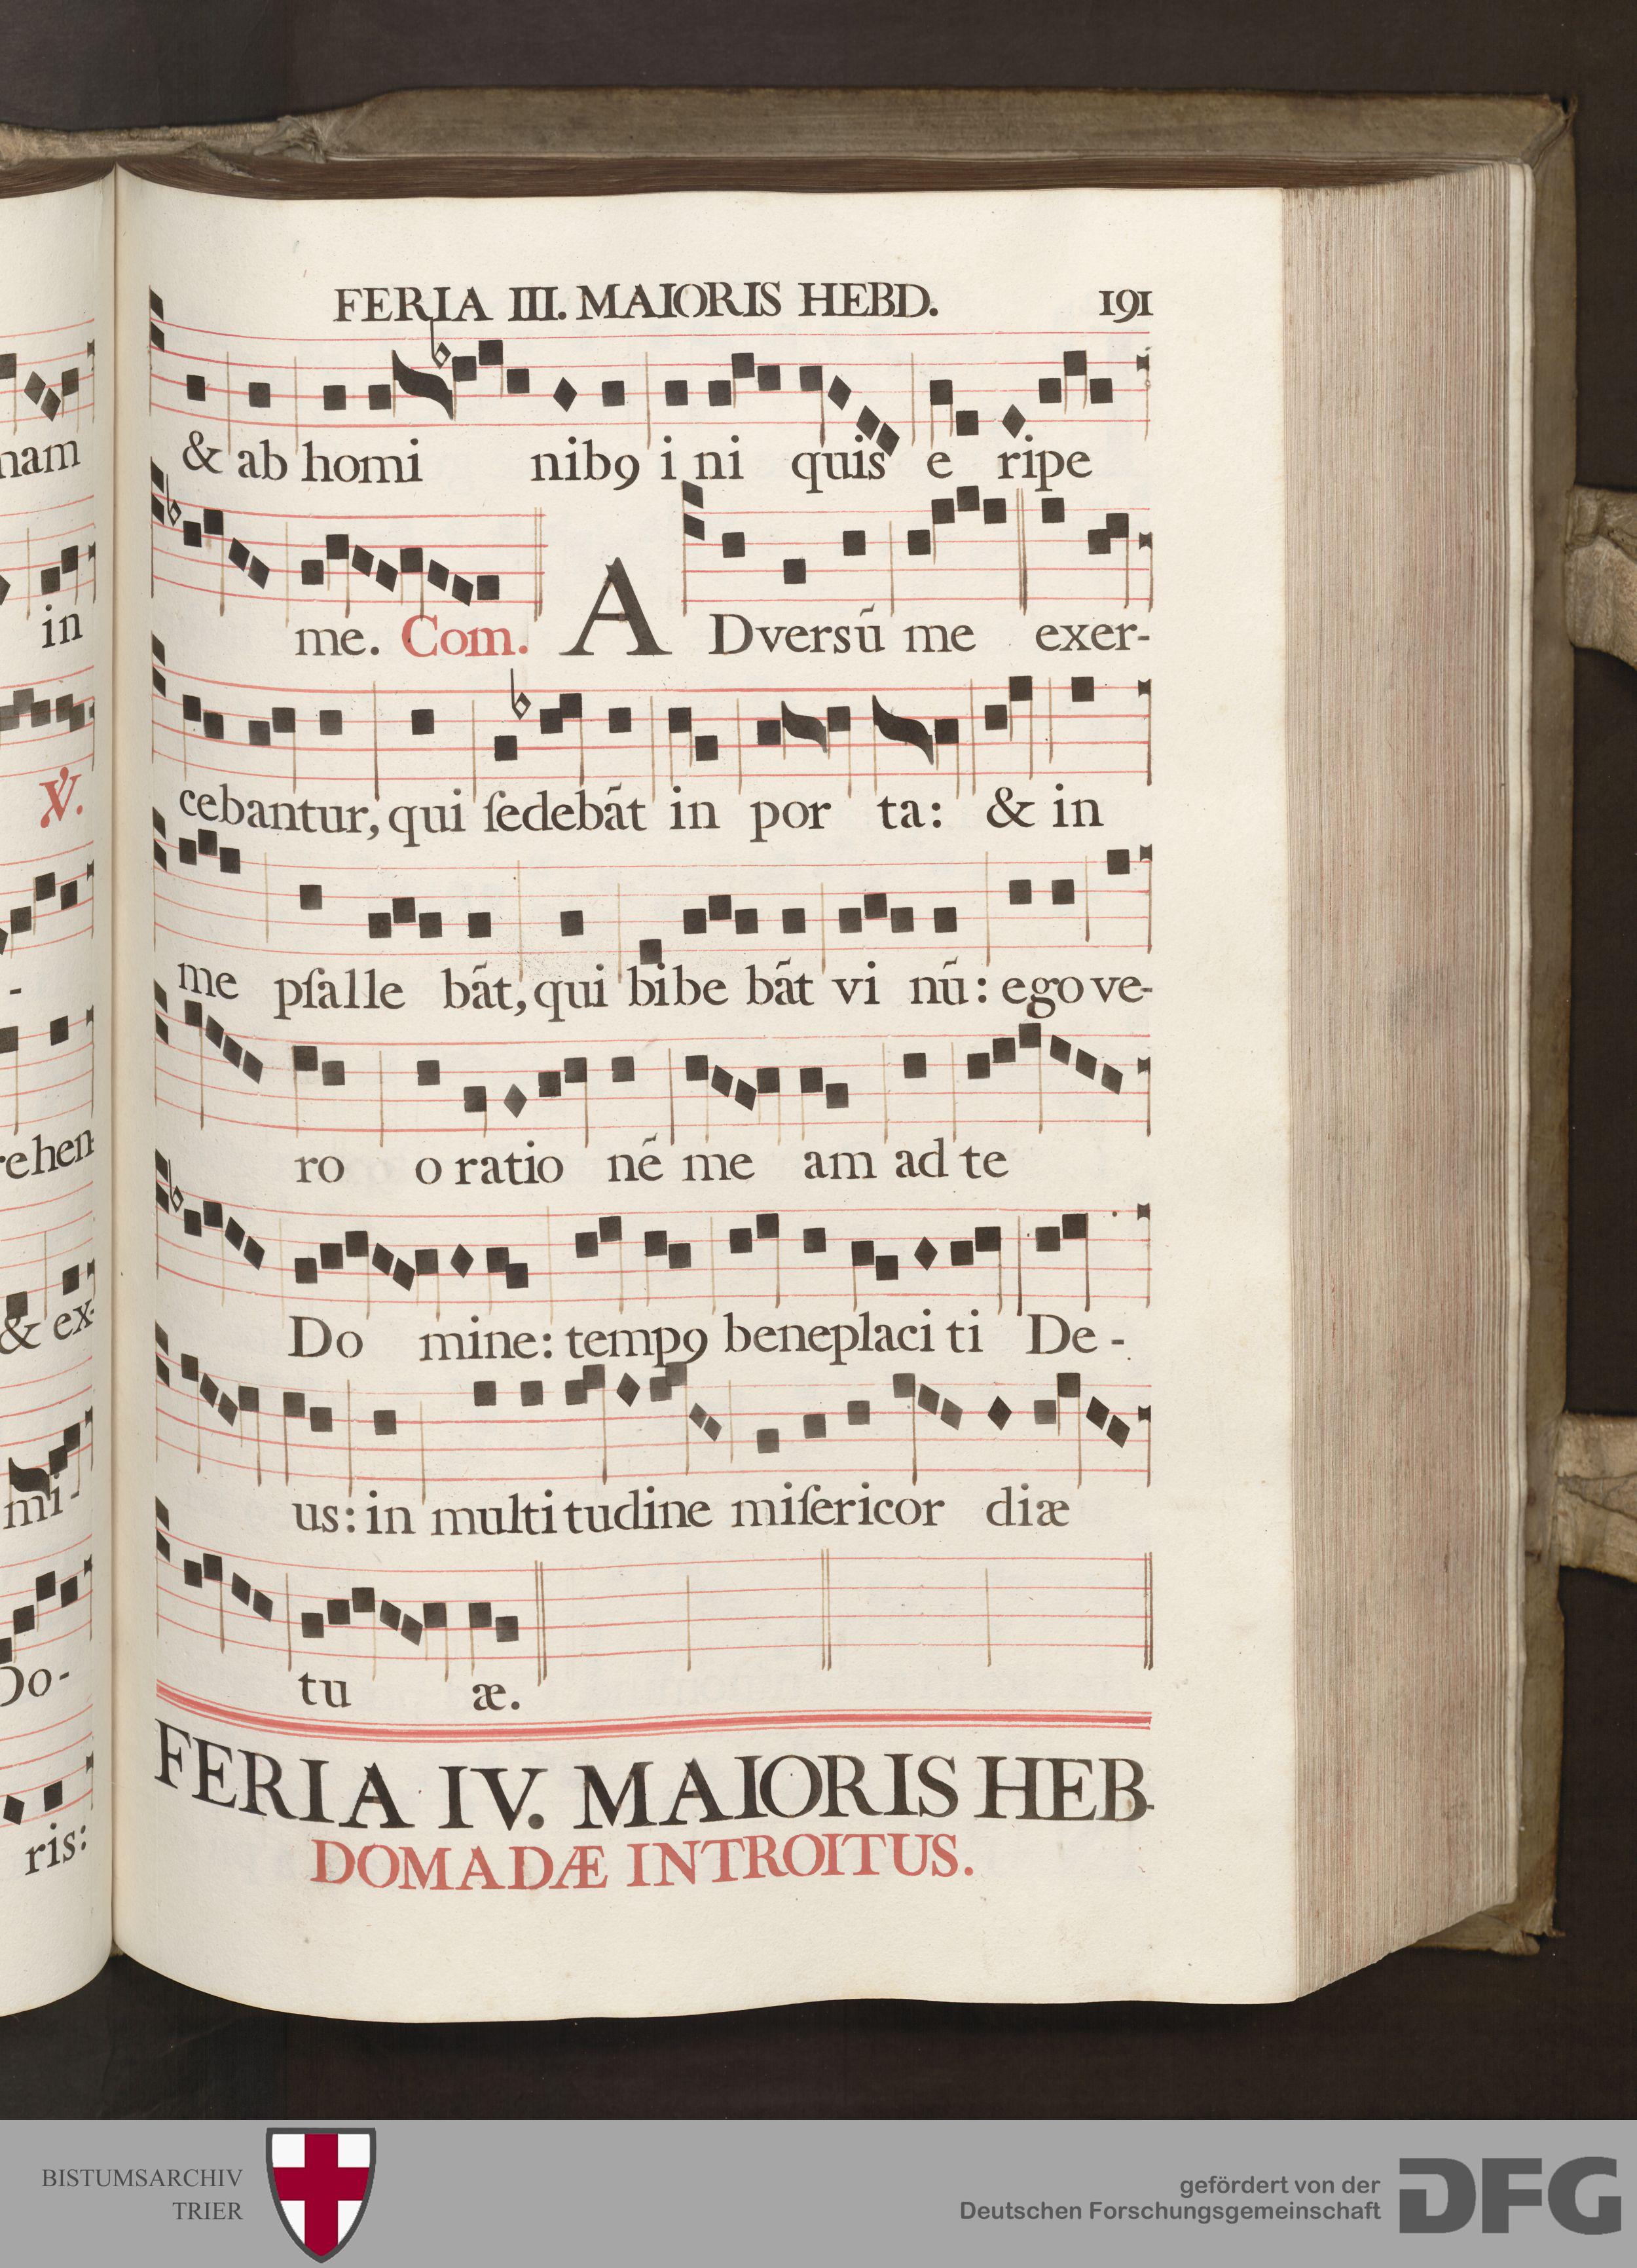 FERIA III. MAIORIS HEBD. 191
& ab homi nibꝯ i ni quis e ripe
me. Com. ADversũ me exer-
cebantur, qui ſedebãt in por ta: & in
me pſalle bãt, qui bibe bãt vi nũ: ego ve-
ro o ratio nẽ me am ad te
Do mine: tempꝯ beneplaci ti De-
us: in multi tudine miſericor diæ
tu æ.
FERIA IV. MAIORIS HEB-
DOMADÆ INTROITUS.
nam
in
℣.
-
rehen-
& ex-
mi-
Do-
ris:
BISTUMSARCHIV
TRIER
gefördert von der
Deutschen Forschungsgemeinschaft
DFG